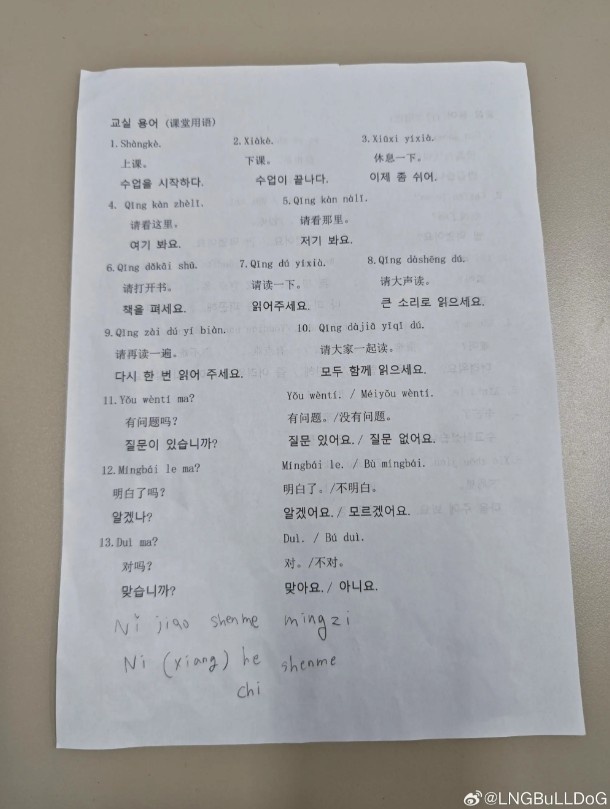 교실 용어 (课堂用语)
1. Shàngkè. 2. Xiàkè. 3. Xiūxi yíxià.
上课。 下课。 休息一下。
수업을 시작하다. 수업이 끝나다. 이제 좀 쉬어.
4. Qǐng kàn zhèlǐ. 5. Qǐng kàn nàlǐ.
请看这里。 请看那里。
여기 봐요. 저기 봐요.
6. Qǐng dǎkāi shū. 7. Qǐng dú yíxià. 8. Qǐng dàshēng dú.
请打开书。 请读一下。 请大声读。
책을 펴세요. 읽어주세요. 큰 소리로 읽으세요.
9. Qǐng zài dú yí biàn. 10. Qǐng dàjiā yìqǐ dú.
请再读一遍。 请大家一起读。
다시 한 번 읽어 주세요. 모두 함께 읽으세요.
11. Yǒu wèntí ma? Yǒu wèntí. / Méiyǒu wèntí.
有问题吗? 有问题。/没有问题。
질문이 있습니까? 질문 있어요. / 질문 없어요.
12. Míngbái le ma? Míngbái le. / Bù míngbái.
明白了吗? 明白了。/不明白。
알겠나? 알겠어요. / 모르겠어요.
13. Duì ma? Duì. / Bú duì.
对吗? 对。/不对。
맞습니까? 맞아요. / 아니요.
Nǐ jiao shenme mingzi
Ni (xiang) he shenme
chi
@LNGBuLLDoG